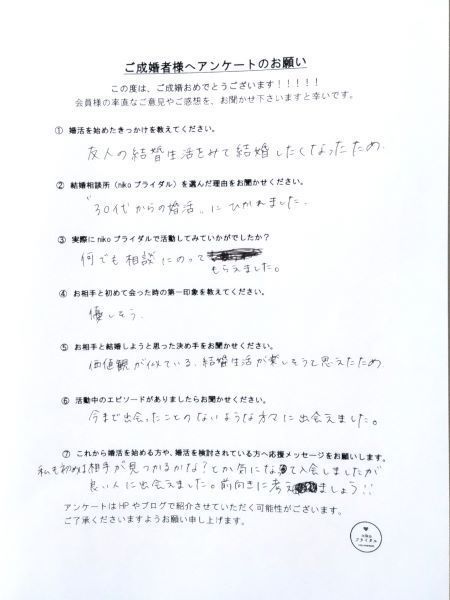 ご成婚者様へアンケートのお願い
この度は、ご成婚おめでとうございます!!!!!
会員様の率直なご意見やご感想を、お聞かせ下さいますと幸いです。
① 婚活を始めたきっかけを教えてください。
友人の結婚生活をみて結婚したくなったため
② 結婚相談所(nikoブライダル)を選んだ理由をお聞かせください。
"30代からの婚活"にひかれました。
③ 実際にnikoブライダルで活動してみていかがでしたか?
何でも相談にのって
もらえました。
④ お相手と初めて会った時の第一印象を教えてください。
優しそう.
⑤ お相手と結婚しようと思った決め手をお聞かせください。
価値観が似ている、結婚生活が楽しそうと思えたため
⑥ 活動中のエピソードがありましたらお聞かせください。
今まで出会ったことのないような方々に出会えました。
⑦ これから婚活を始める方や、婚活を検討されている方へ応援メッセージをお願いします。
私も初めは相手が見つかるかな?とか気になって入会しましたが
良い人に出会えました。前向きに考えましょう!!
アンケートはHPやブログで紹介させていただく可能性がございます。
ご了承くださいますようお願い申し上げます。
niko
ブライダル